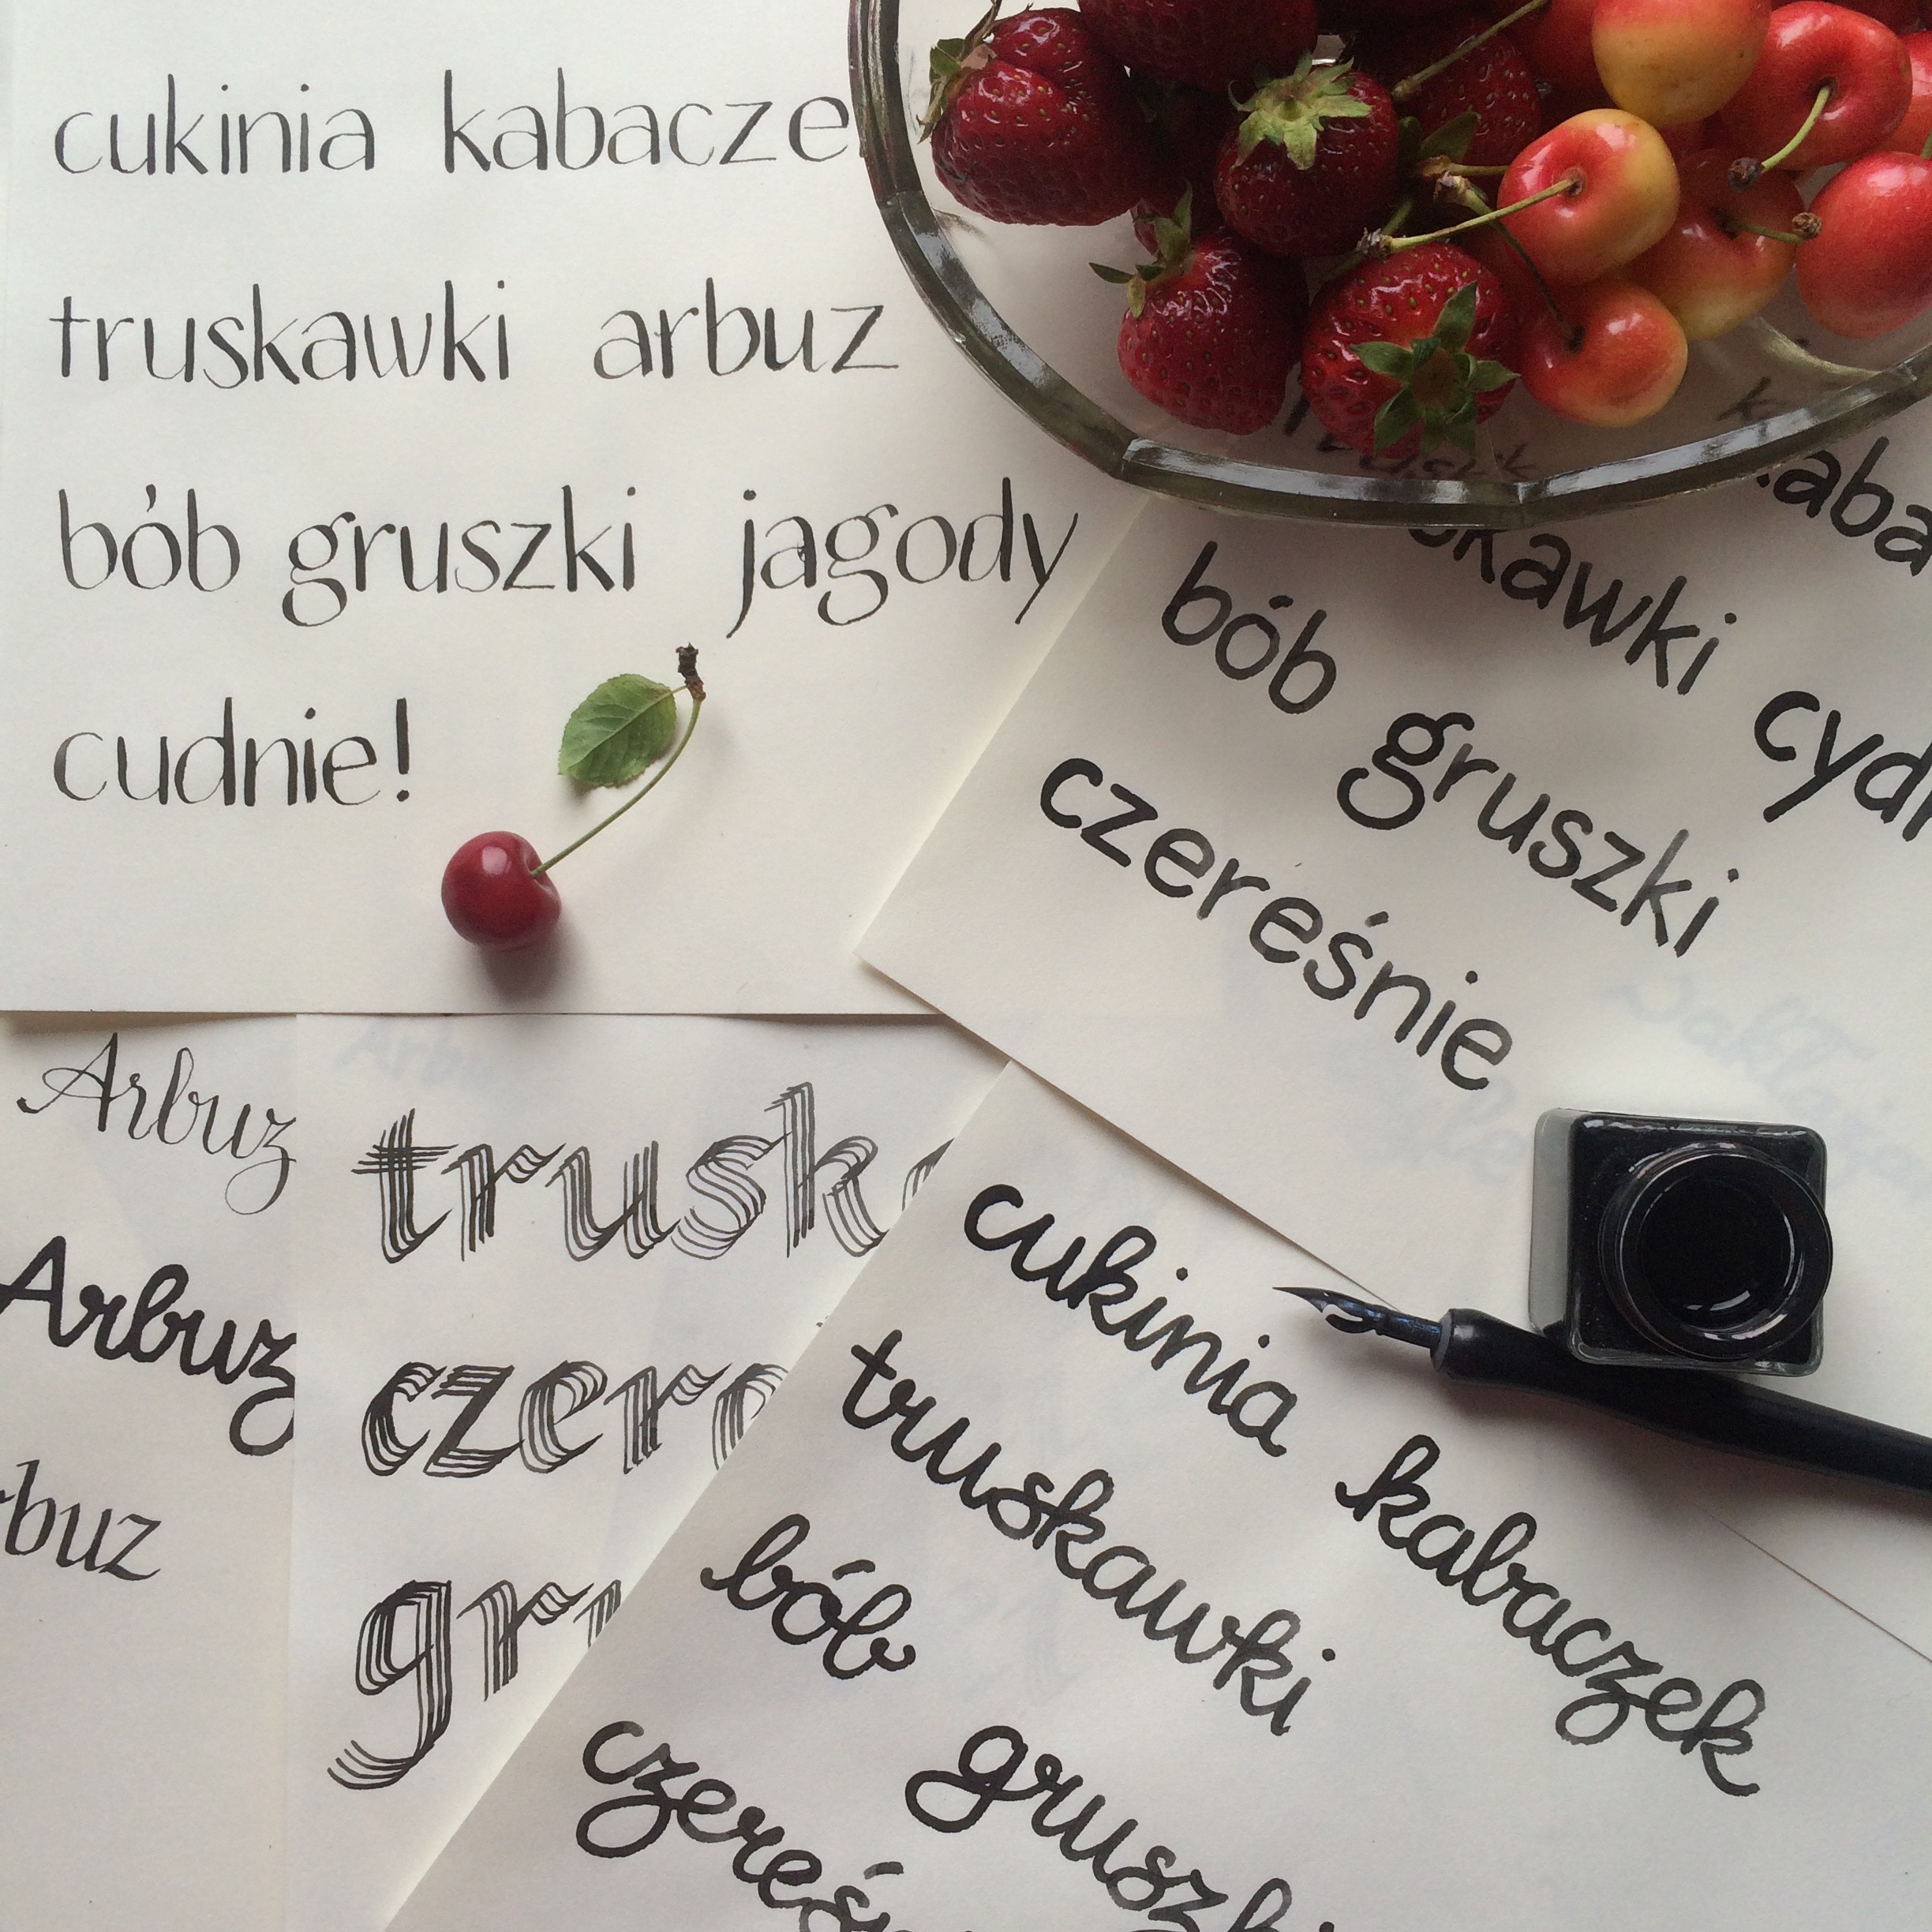 cukinia kabacze
truskawki arbuz
bób gruszki jagody
cudnie!
kaba
skawki cyd
bób gruszki
czereśnie
Arbuz
Arbuz
rbuz
trusk
czere
gru
cukinia kabaczek
truskawki
bób gruszki
czereś